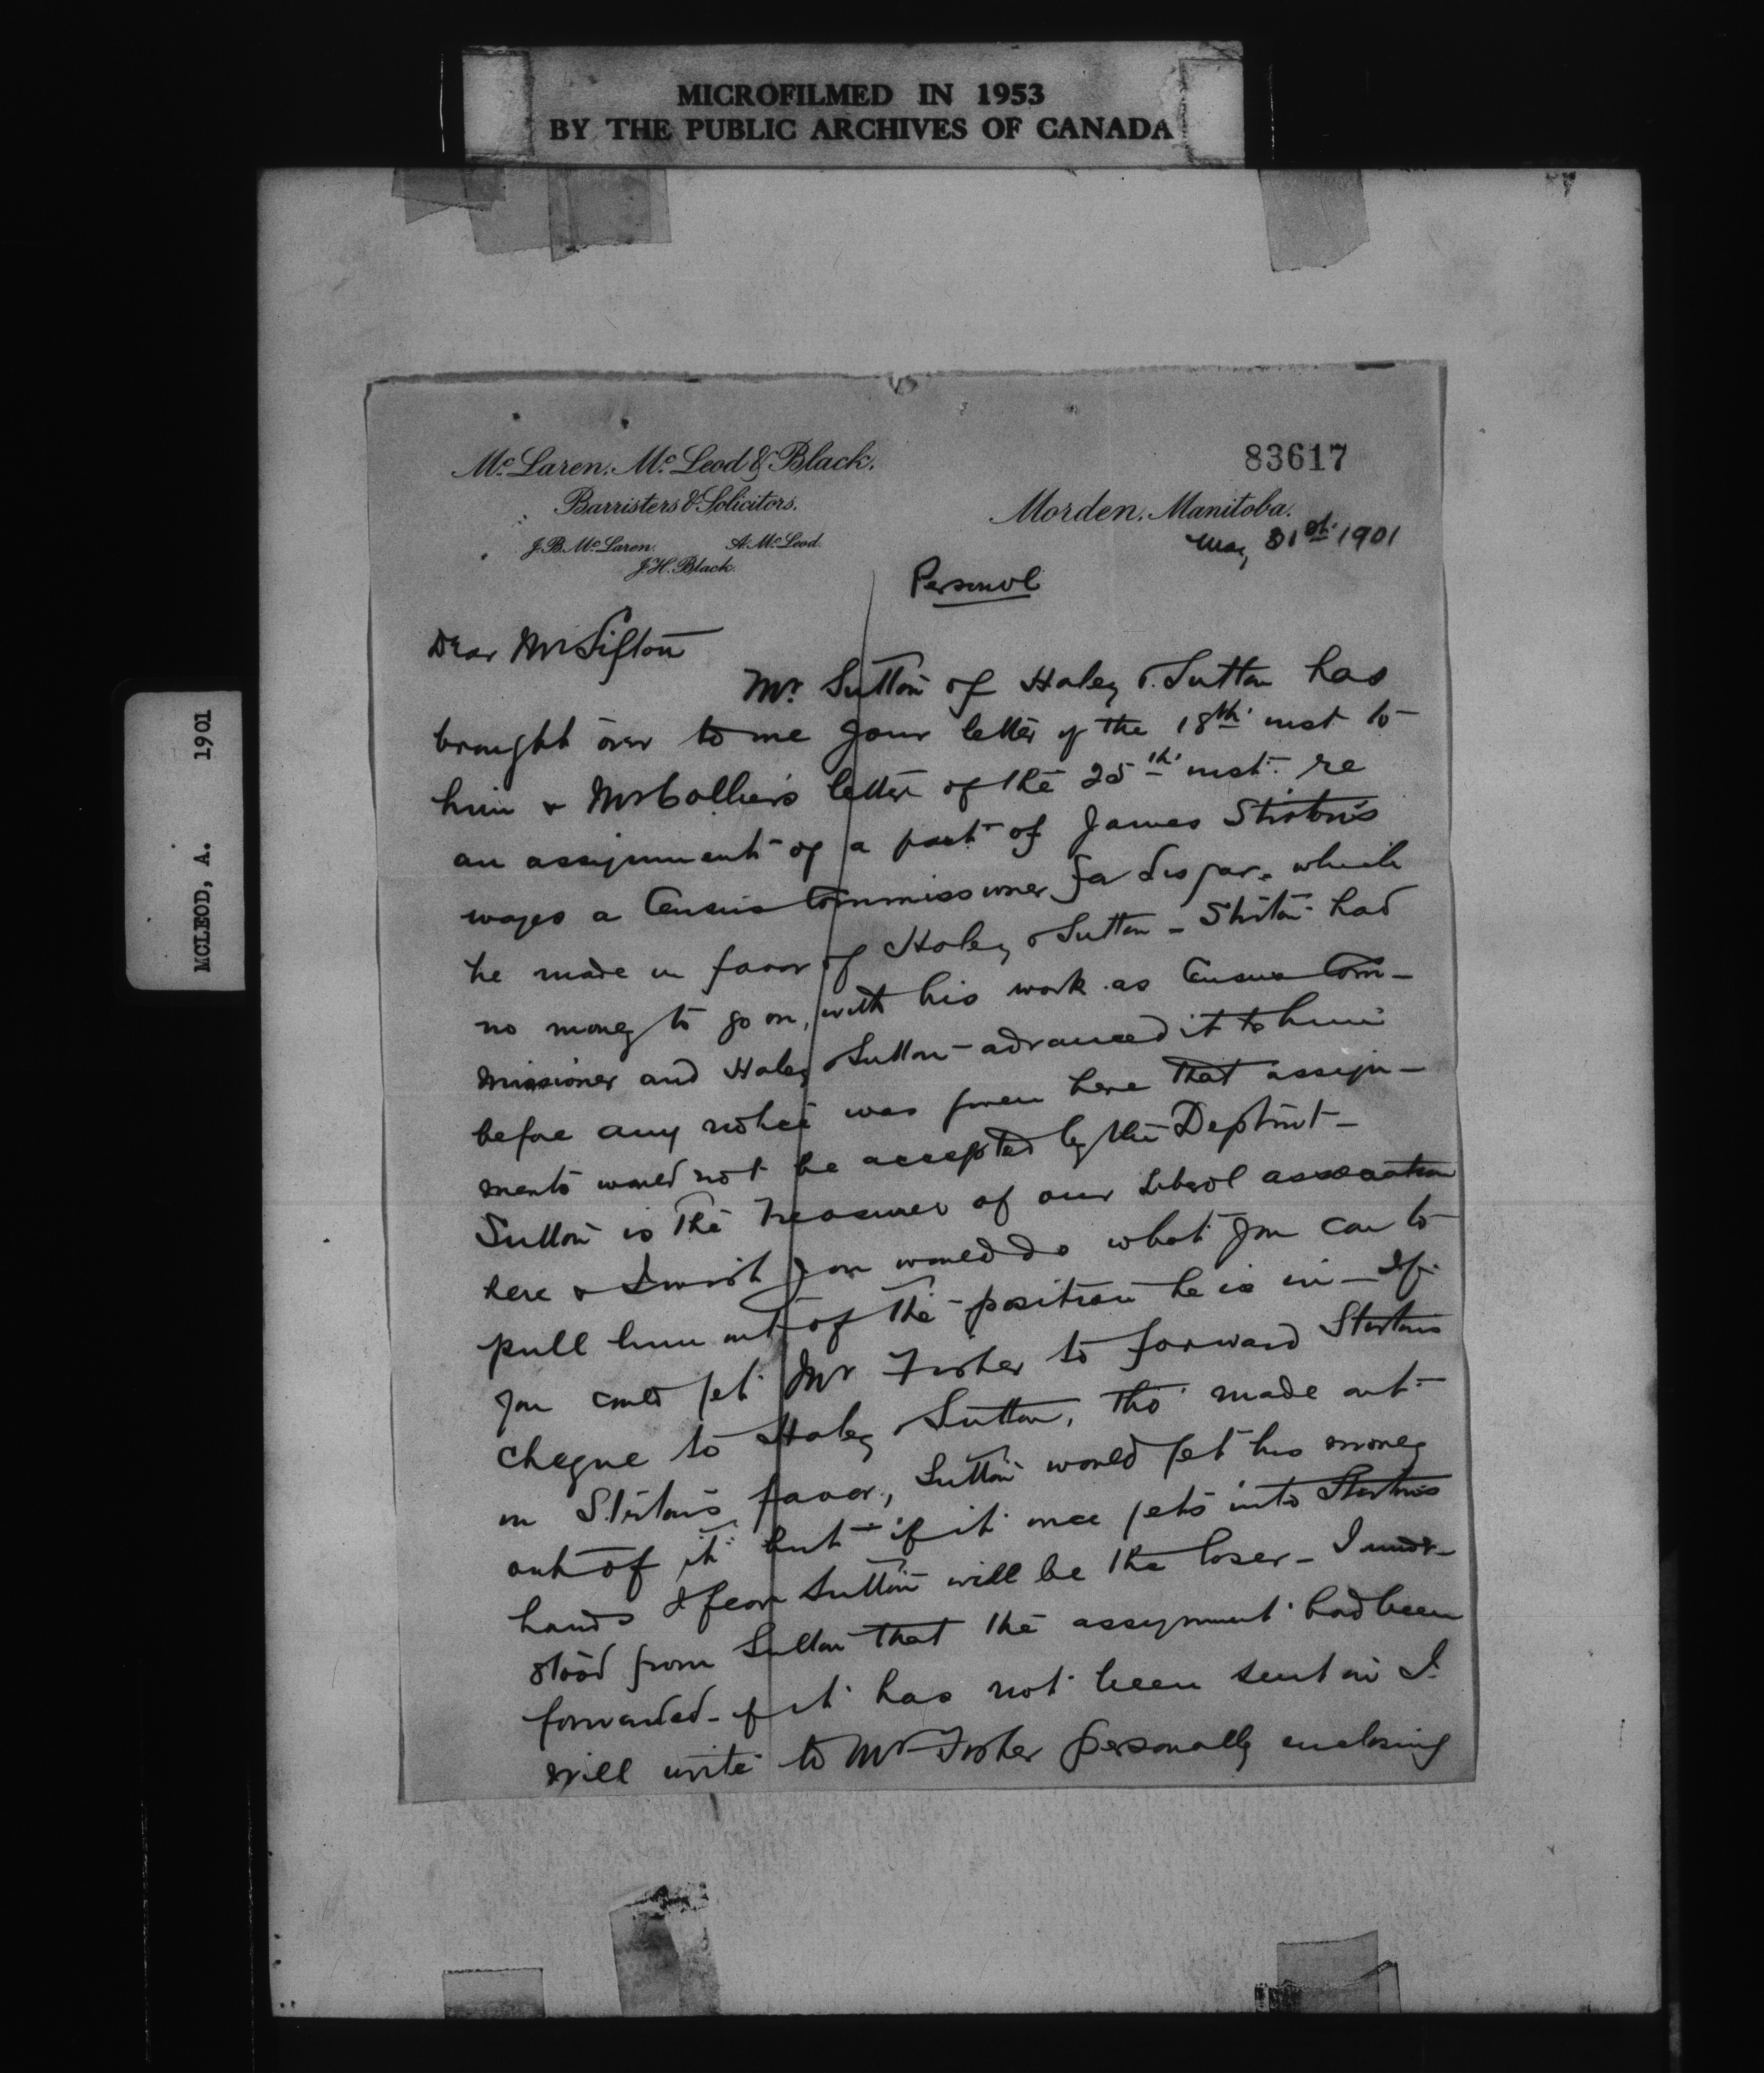 MICROFILMED IN 1953
BY THE PUBLIC ARCHIVES OF CANADA
MCLEOD, A. 1901
83617
Mc Laren, Mc Leod & Black.
Barristers & Solicitors.
J. B. Mc Laren. A. Mc Leod.
J. H. Black.
Morden, Manitoba.
May 31st 1901
Personal
Dear Mr Sifton
Mr. Sutton of Haley & Sutton has
brought over to me your letter of the 18th inst to
him & Mr Collier's letter of the 25th inst. re
an assignment of a part of James Stirton's
wages a Census Commissioner for Lisgar. which
he made in favor of Haley & Sutton - Stirton had
no money to go on, with his work as Census Com-
missioner and Haley & Sutton advanced it to him
before any notice was given here that assign-
ments would not be accepted by the Deptmt -
Sutton is the Treasurer of our Liberal association
here & I wish you would do what you can to
pull him out of the position he is in - If
you could get Mr Fisher to forward Stirtons
cheque to Haley & Sutton, tho' made out
in Stirtons favor, Sutton would get his money
out of it but if it once gets into Stirtons
hands I fear Sutton will be the loser - I under-
stood from Sutton that the assignment had been
forwarded - if it has not been sent in I
will write to Mr Fisher personally enclosing